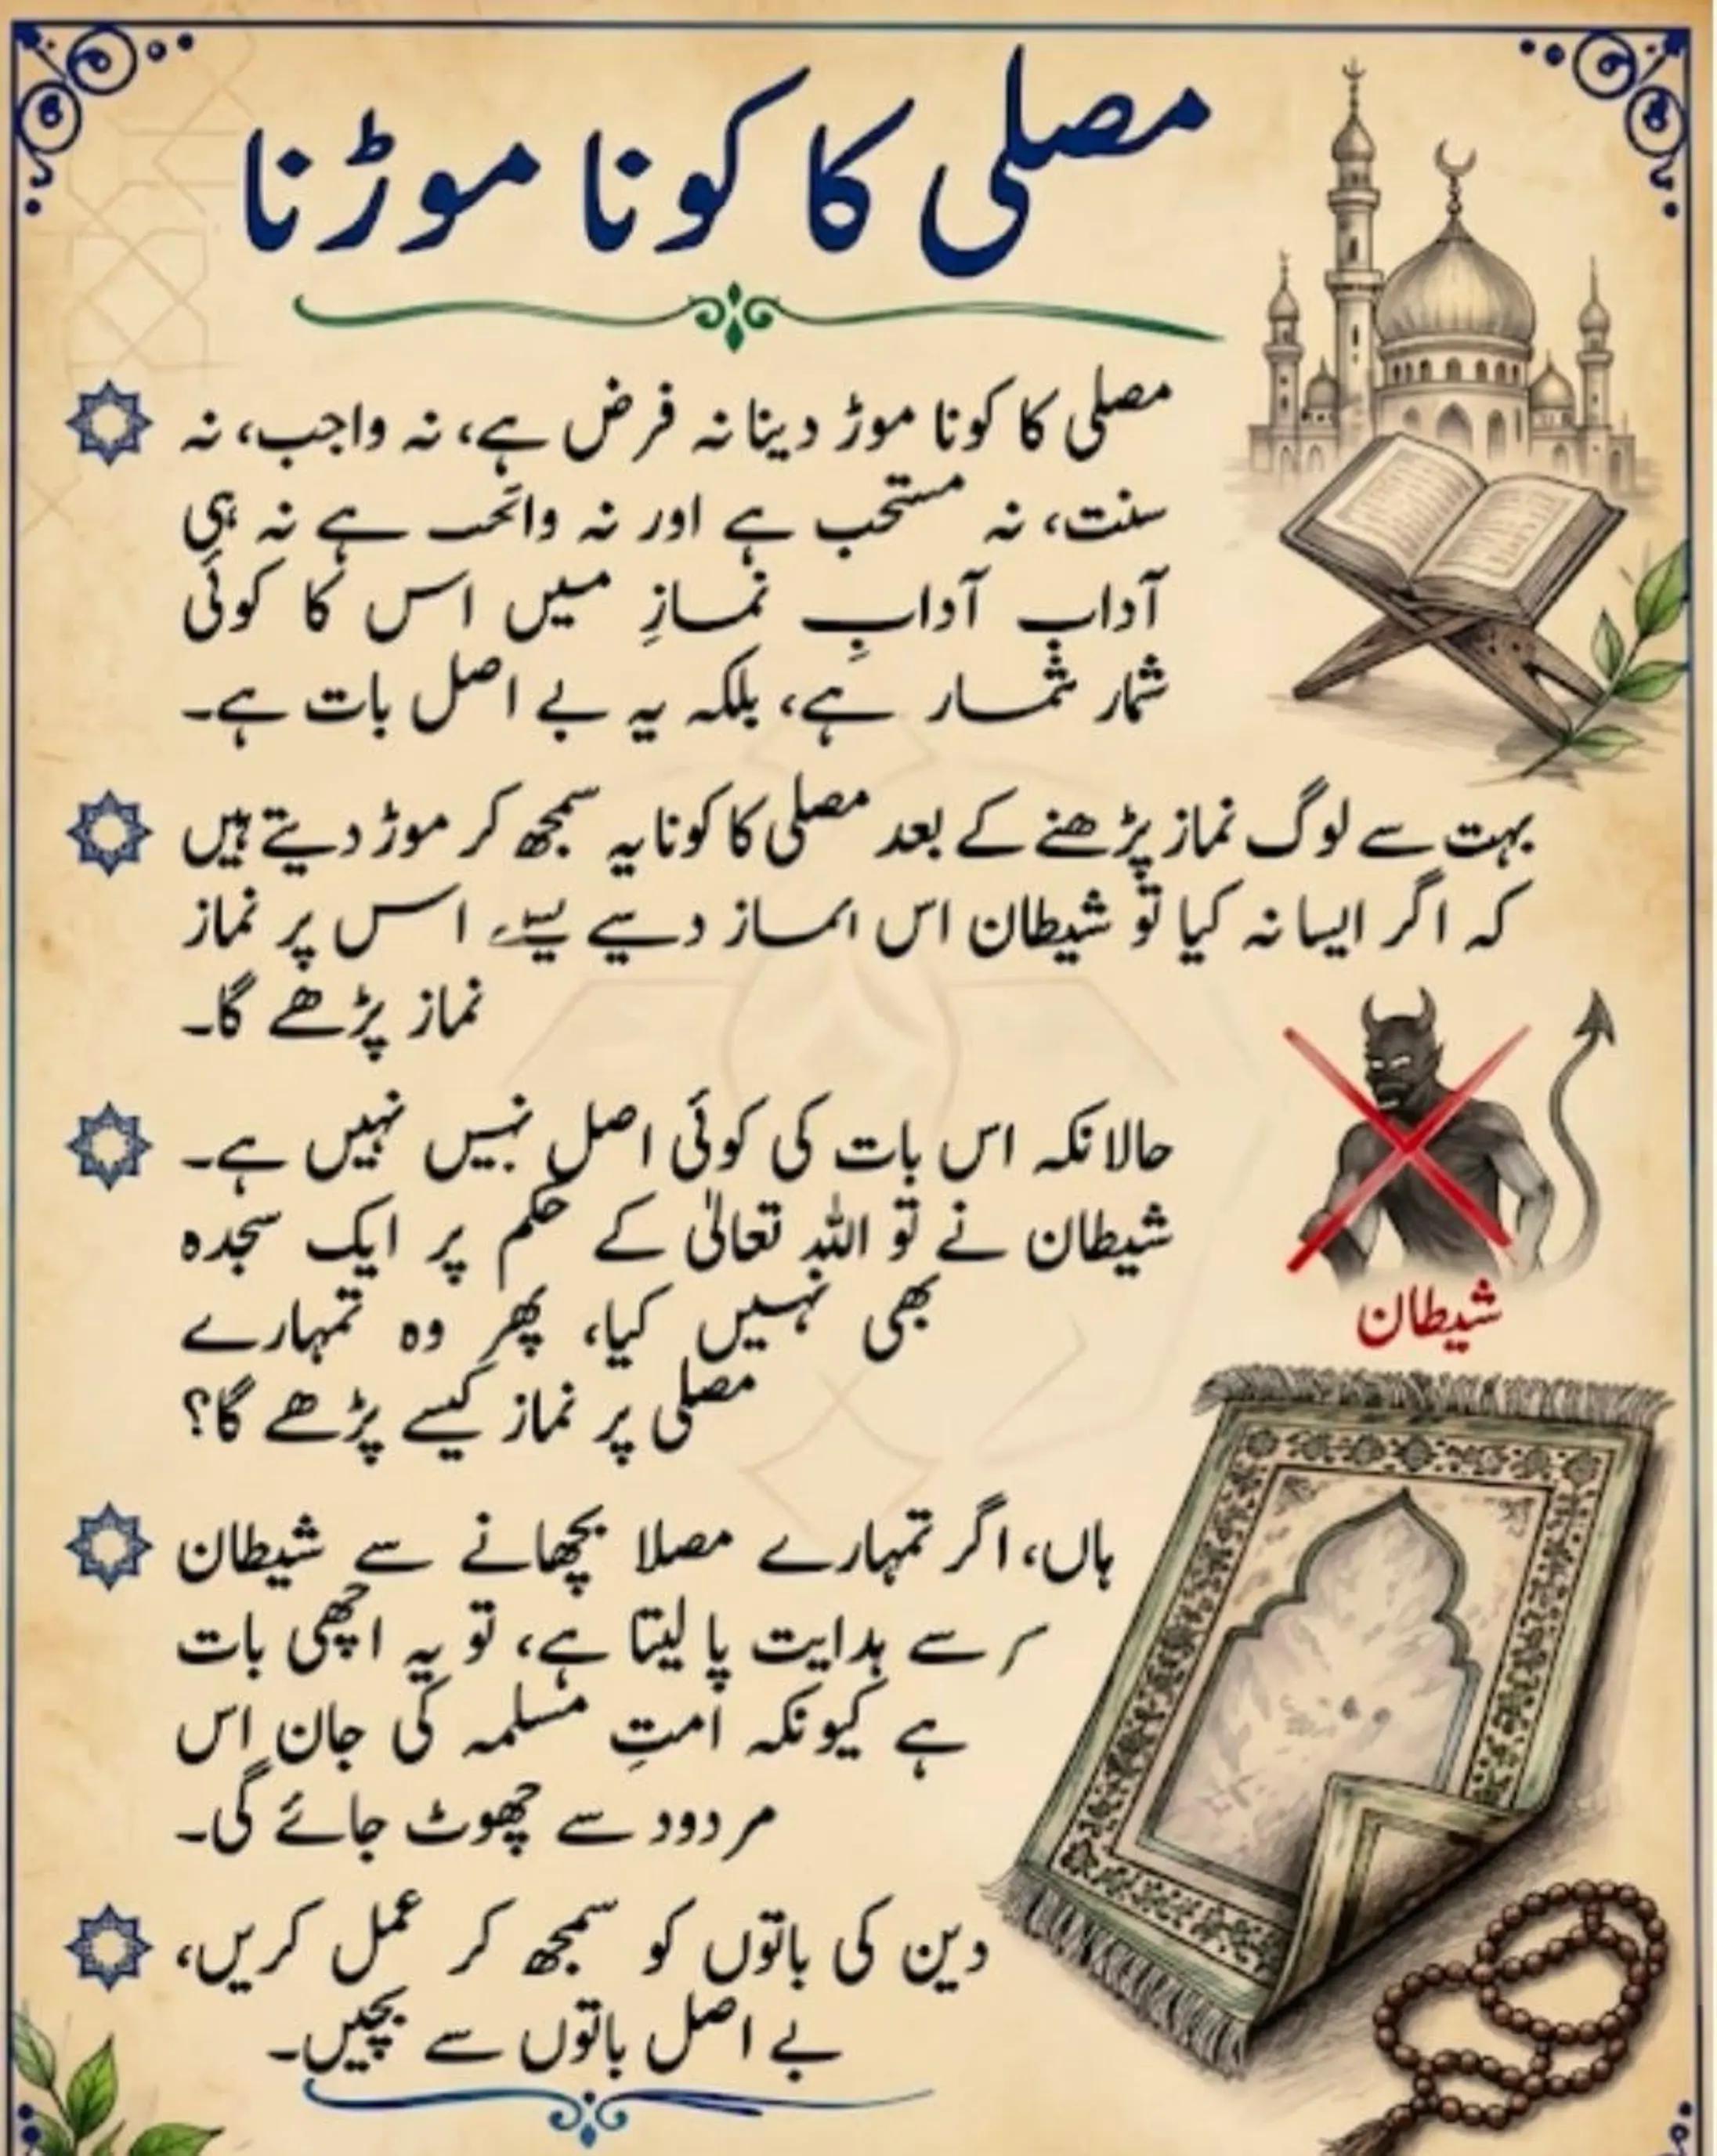 مصلی کا کونا موڑنا
مصلی کا کونا موڑ دینا نہ فرض ہے، نہ واجب، نہ
سنت، نہ مستحب ہے اور نہ ہے نہ ہی
آداب آدابِ نمازِ میں اس کا کوئی
شمار شمار ہے، بلکہ یہ بے اصل بات ہے۔
بہت سے لوگ نماز پڑھنے کے بعد مصلی کا کونا یہ سمجھ کر موڑ دیتے ہیں
کہ اگر ایسا نہ کیا تو شیطان اس اس پر نماز
نماز پڑھے گا۔
حالانکہ اس بات کی کوئی اصل نہیں نہیں ہے۔
شیطان نے تو اللہ تعالیٰ کے حکم پر ایک سجدہ
بھی نہیں کیا، پھر وہ تمہارے
مصلی پر نماز کیسے پڑھے گا؟
شیطان
ہاں، اگر تمہارے مصلا بچھانے سے شیطان
سے ہدایت پا لیتا ہے، تو یہ اچھی بات
ہے کیونکہ امتِ مسلمہ کی جان اس
مردود سے چھوٹ جائے گی۔
دین کی باتوں کو سمجھ کر عمل کریں،
بے اصل باتوں سے بچیں۔